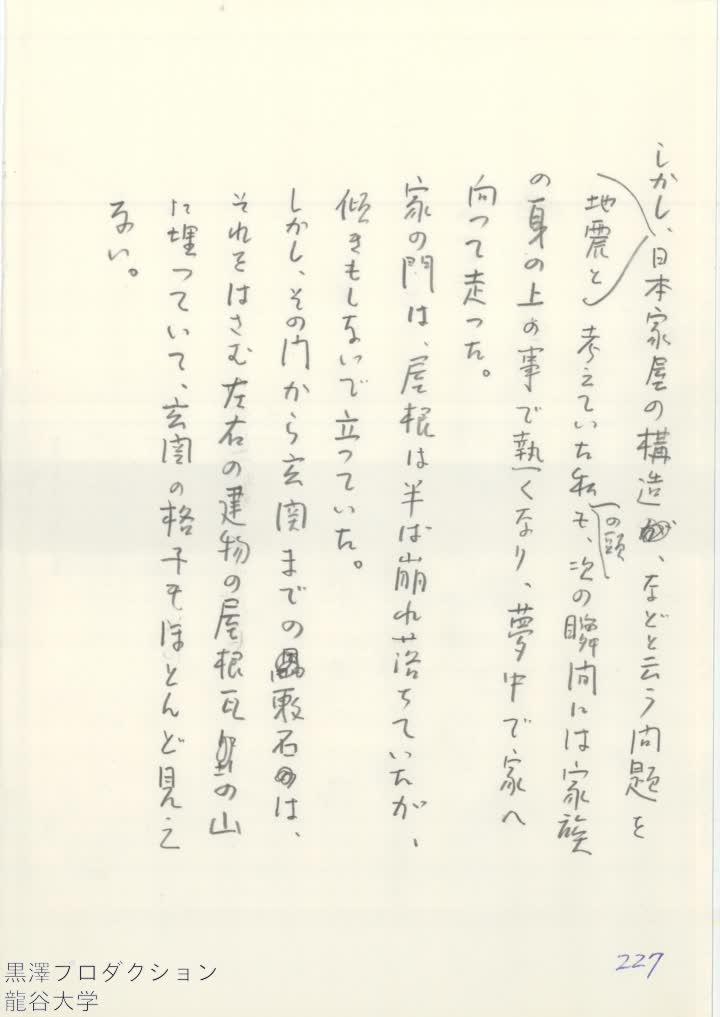 しかし、日本家屋の構造、などと云う問題を
地震と考えていた私の頭も、次の瞬間には家族
の身の上の事で熱くなり、夢中で家へ
向って走った。
家の門は、屋根は半ば崩れ落ちていたが、
傾きもしないで立っていた。
しかし、その門から玄関までの敷石は、
それをはさむ左右の建物の屋根瓦の山
に埋っていて、玄関の格子もほとんど見え
ない。
227
黒澤プロダクション
龍谷大学